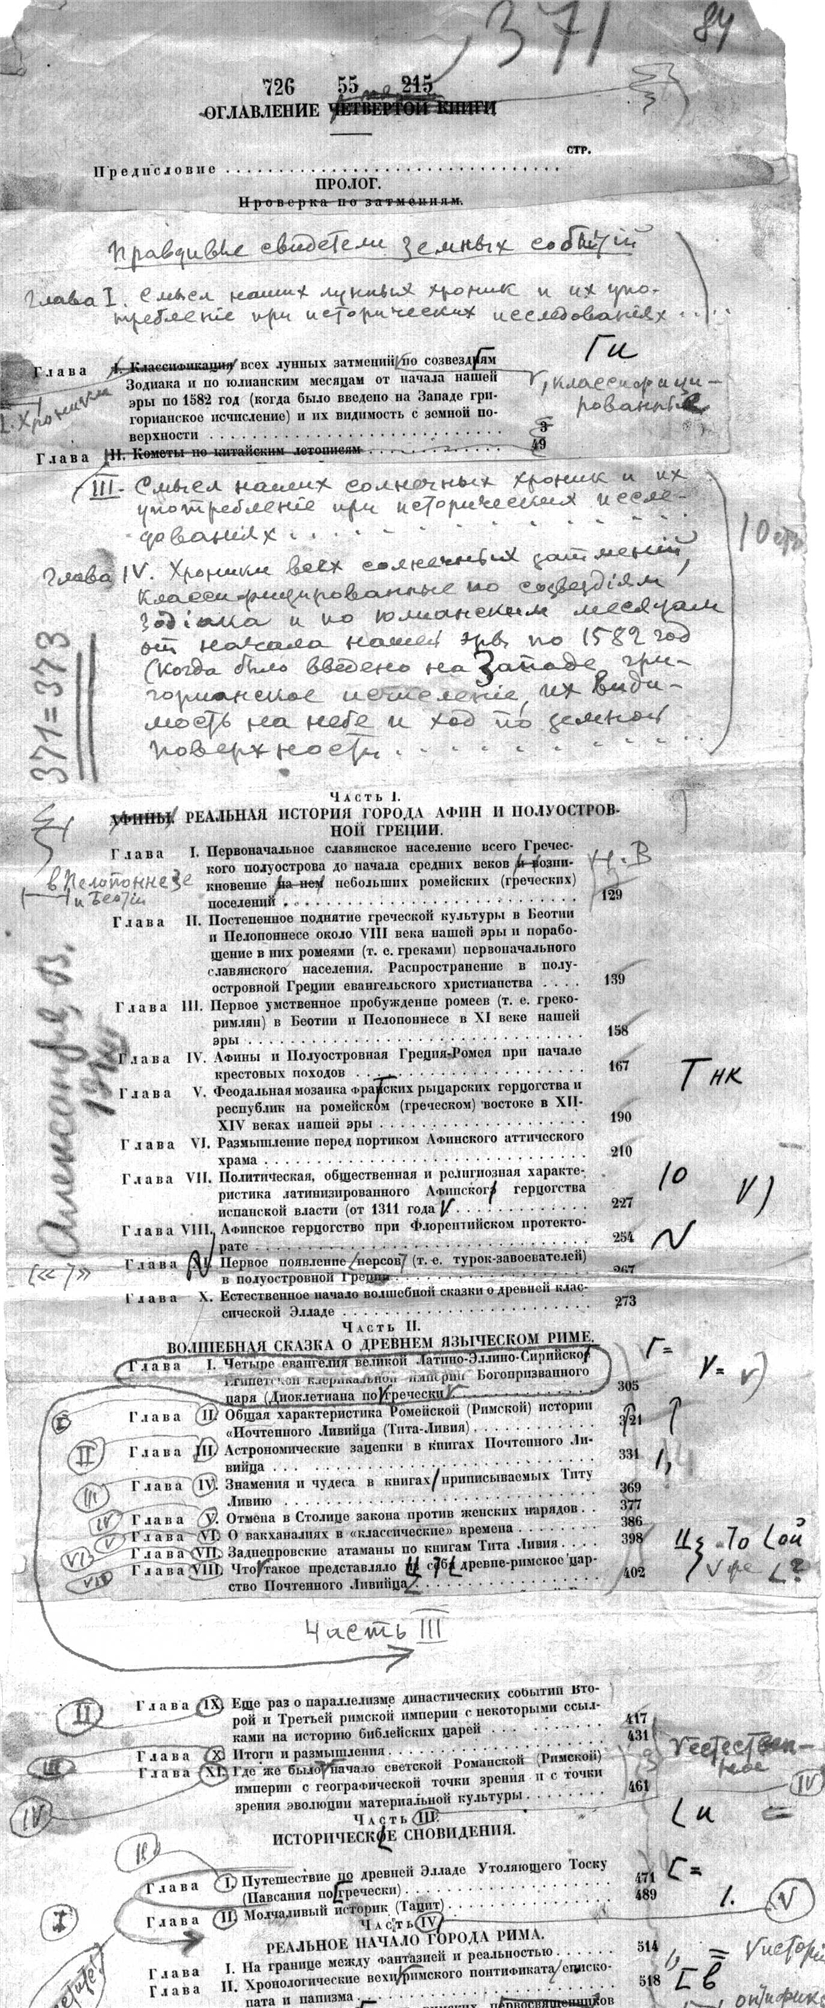 371 84
726 55 215
ОГЛАВЛЕНИЕ ЧЕТВЕРТОЙ КНИГИ
СТР.
Предисловие
ПРОЛОГ.
Проверка по затмениям.
Правдивые свидетели земных событій
Глава I. Смысл наших лунных хроник и их упо-
требленіе при исторических исследованіях
Глава I. Классификация всех лунных затмений по созвездиям
Зодиака и по юлианским месяцам от начала нашей
эры по 1582 год (когда было введено на Западе гри-
горианское исчисление) и их видимость с земной по-
верхности 3
Хроники
Г и
V, классифици-
рованные
Глава II. Кометы по китайским летописям 49
III. Смысл наших солнечных хроник и их
употребленіе при исторических иссле-
дованіях
Глава IV. Хроники всех солнечных затменій,
классифицированные по созвездіям
Зодіака и по юлианским месяцам
от начала нашей эры по 1582 год
(когда было введено на Западе гри-
горианское исчисленіе, их види-
мость на небе и ход по земной
поверхности
371=373
Часть I.
АФИНЫ. РЕАЛЬНАЯ ИСТОРИЯ ГОРОДА АФИН И ПОЛУОСТРОВ-
НОЙ ГРЕЦИИ.
Глава I. Первоначальное славянское население всего Гречес-
кого полуострова до начала средних веков и возни-
кновение на нем небольших ромейских (греческих)
поселений 129
в Пелопоннезе
и Беотіи
Н. В
Глава II. Постепенное поднятие греческой культуры в Беотии
и Пелопоннесе около VIII века нашей эры и порабо-
щение в них ромеями (т. е. греками) первоначального
славянского населения. Распространение в полу-
островной Греции евангельского христианства 139
Глава III. Первое умственное пробуждение ромеев (т. е. греко-
римлян) в Беотии и Пелопоннесе в XI веке нашей
эры 158
Глава IV. Афины и Полуостровная Греция-Ромея при начале
крестовых походов 167
Т нк
Глава V. Феодальная мозаика франских рыцарских герцогства и
республик на ромейском (греческом) востоке в XII-
XIV веках нашей эры 190
Глава VI. Размышление перед портиком Афинского аттического
храма 210
Глава VII. Политическая, общественная и религиозная характе-
ристика латинизированного Афинского герцогства
испанской власти (от 1311 года 227
Глава VIII. Афинское герцогство при Флорентийском протекто-
рате 254
Глава XI. Первое появление персов (т. е. турок-завоевателей)
в полуостровной Греции 267
Глава X. Естественное начало волшебной сказки о древней клас-
сической Элладе 273
Александр. В.
Часть II.
ВОЛШЕБНАЯ СКАЗКА О ДРЕВНЕМ ЯЗЫЧЕСКОМ РИМЕ.
Глава I. Четыре евангелия великой Латино-Эллино-Сирийской
Египетской клерикальной империи Богопризванного
царя (Диоклетиана по гречески 305
I Глава II. Общая характеристика Ромейской (Римской) истории
«Почтенного Ливийца (Тита-Ливия) 321
II Глава III. Астрономические зацепки в книгах Почтенного Ли-
вийца 331
III Глава IV. Знамения и чудеса в книгах приписываемых Титу
Ливию 369
IV Глава V. Отмена в Столице закона против женских нарядов 377
V Глава VI. О вакханалиях в «классические» времена 386
VI Глава VII. Заднепровские атаманы по книгам Тита Ливия 398
VII Глава VIII. Что такое представляло из себя древне-римское цар-
ство Почтенного Ливийца 402
Часть III
II Глава IX. Еще раз о параллелизме династических событий Вто-
рой и Третьей римской империи с некоторыми ссыл-
ками на историю библейских царей 417
III Глава X. Итоги и размышления 431
IV Глава XI. Где же было начало светской Романской (Римской)
империи с географической точки зрения и с точки
зрения эволюции материальной культуры 461
V естествен-
ное
Часть III. IV
ИСТОРИЧЕСКИЕ СНОВИДЕНИЯ.
Глава I. Путешествие по древней Элладе Утоляющего Тоску
(Павсания по гречески) 471
Глава II. Молчаливый историк (Тацит) 489
Часть IV V
РЕАЛЬНОЕ НАЧАЛО ГОРОДА РИМА.
Глава I. На границе между фантазией и реальностью 514
Глава II. Хронологические вехи римского понтификата еписко-
пата и папизма 518
первосвященников